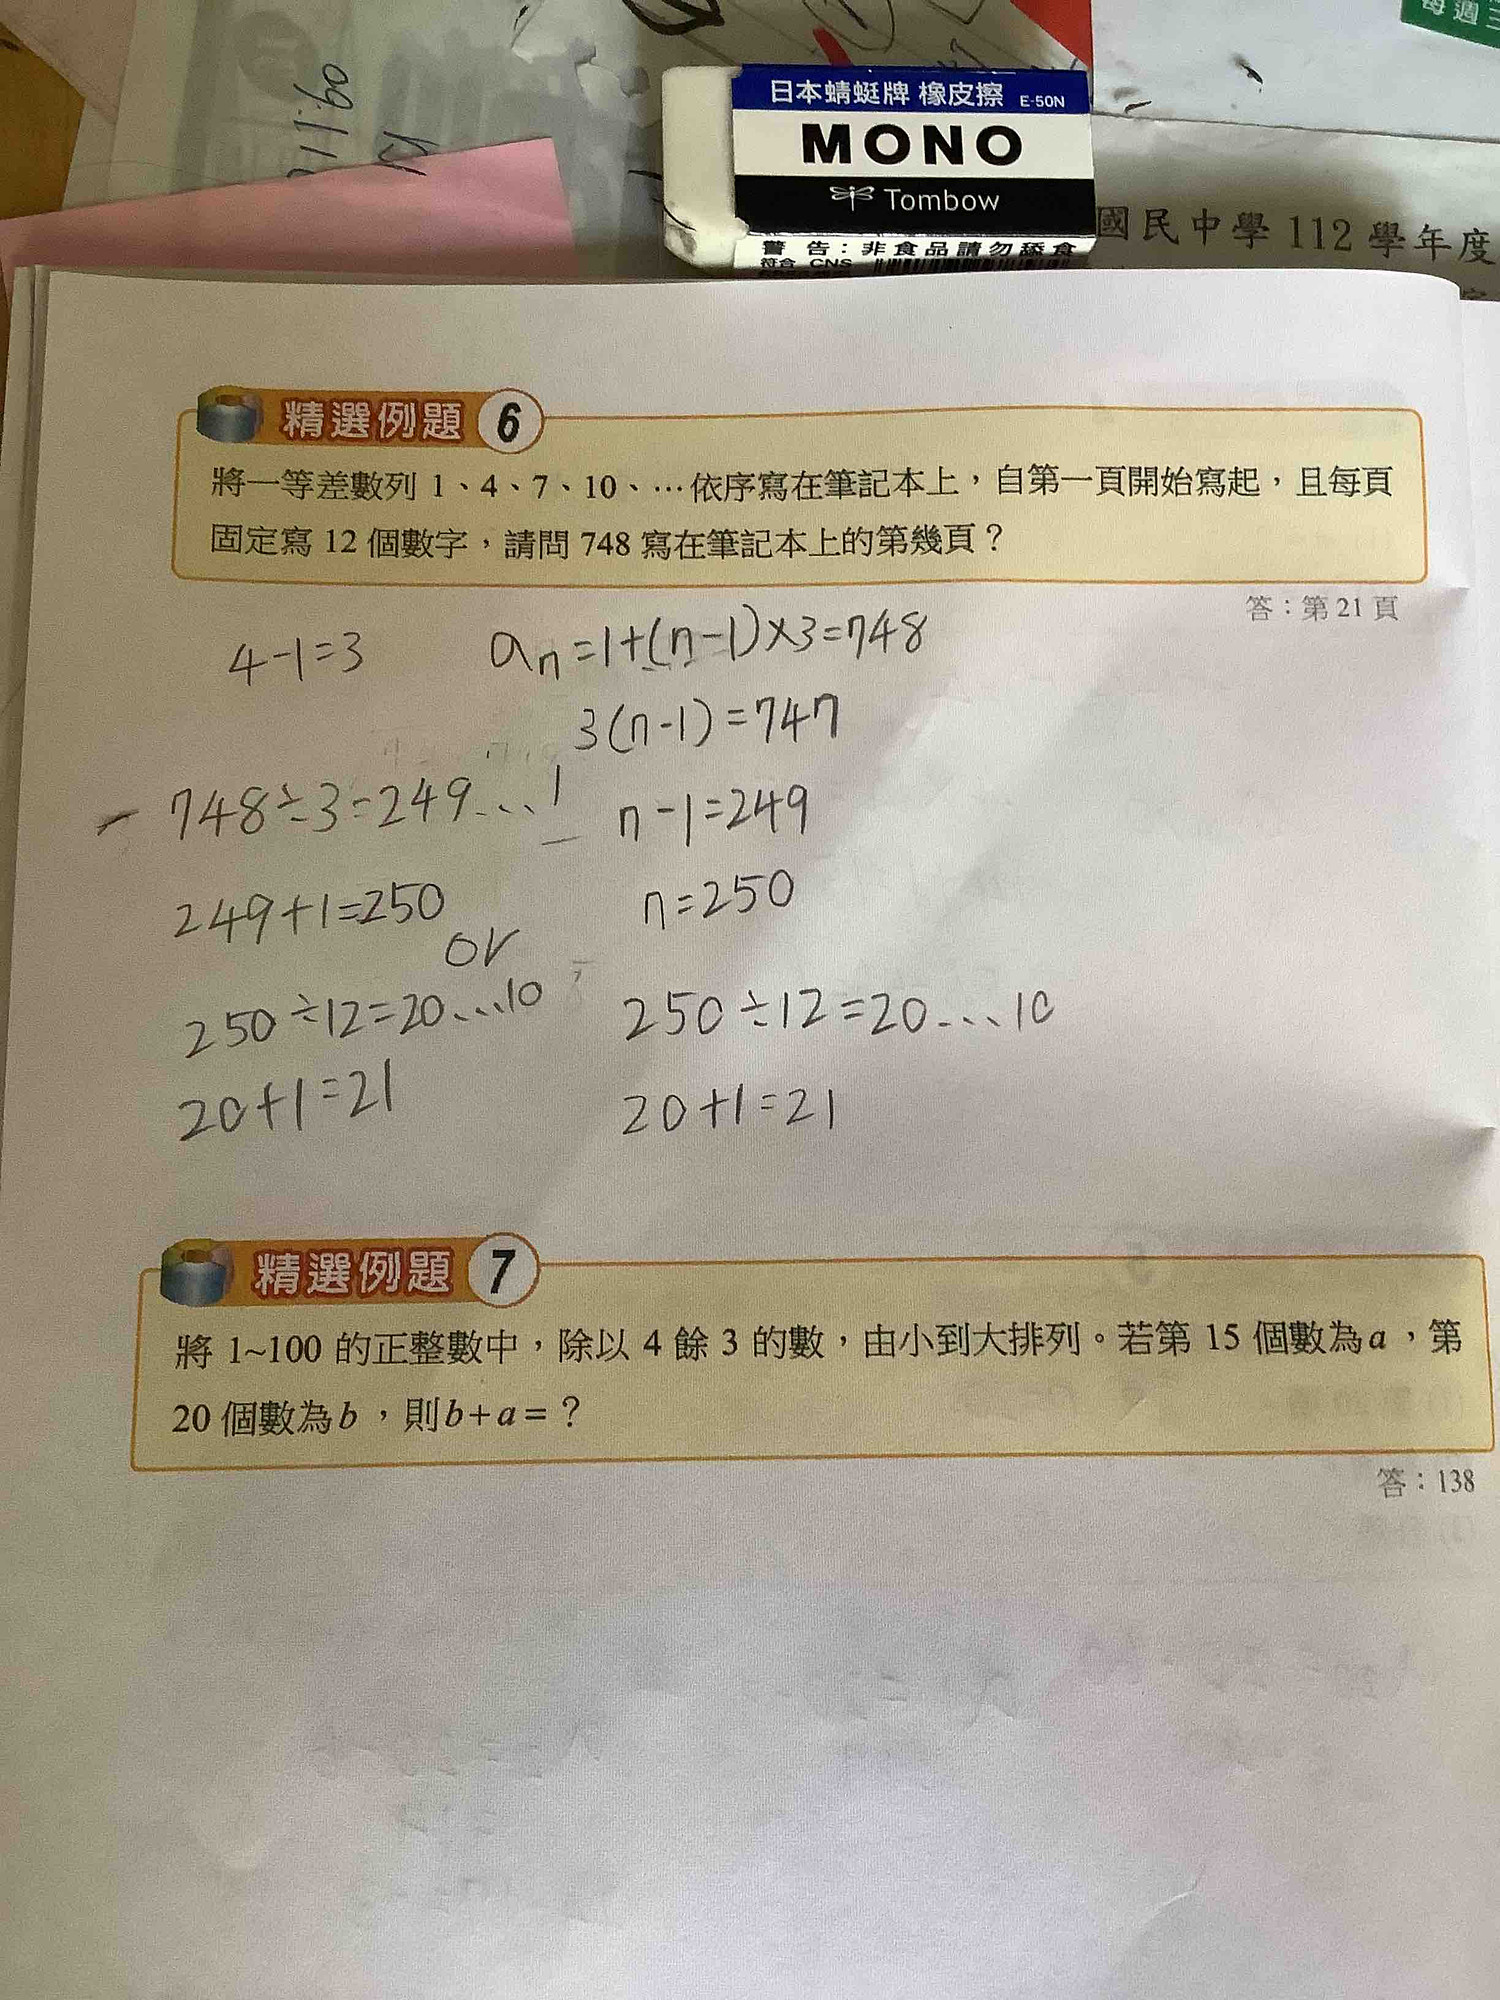 每週三
09:11
日本蜻蜓牌 橡皮擦 E-50N
MONO
Tombow
警 告：非食品請勿舔食
符合 CNS
國民中學 112 學年度
精選例題 6
將一等差數列 1、4、7、10、…依序寫在筆記本上，自第一頁開始寫起，且每頁
固定寫 12 個數字，請問 748 寫在筆記本上的第幾頁？
答：第 21 頁
4-1=3
aₙ=1+(n-1)×3=748
3(n-1)=747
748÷3=249…1
n-1=249
249+1=250
n=250
or
250÷12=20…10
250÷12=20…10
20+1=21
20+1=21
精選例題 7
將 1~100 的正整數中，除以 4 餘 3 的數，由小到大排列。若第 15 個數為 a，第
20 個數為 b，則 b+a=？
答：138